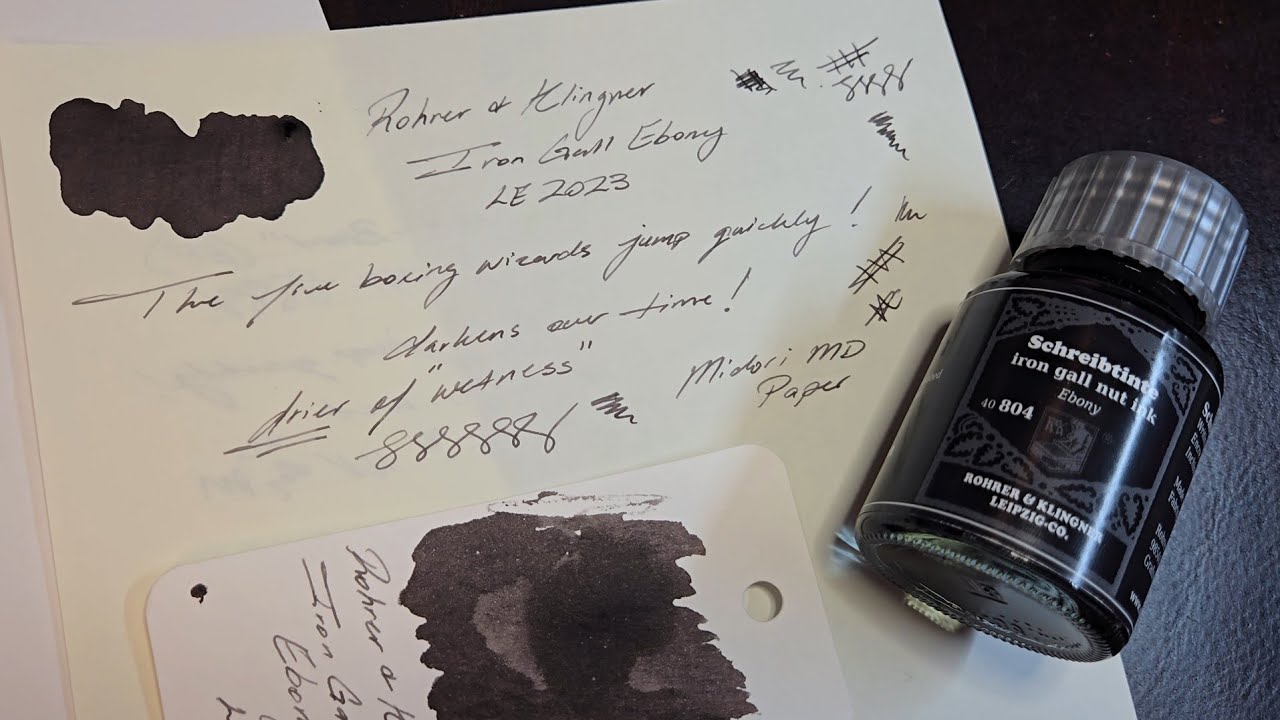 Rohrer & Klingner
Iron Gall Ebony
LE 2023
The five boxing wizards jump quickly!
darkens over time!
drier of "wetness"
Midori MD
Paper
Rohrer & K
Iron Ga
Ebon
Schreibtinte
iron gall nut ink
Ebony
40 804
ROHRER & KLINGNER
LEIPZIG-CO.